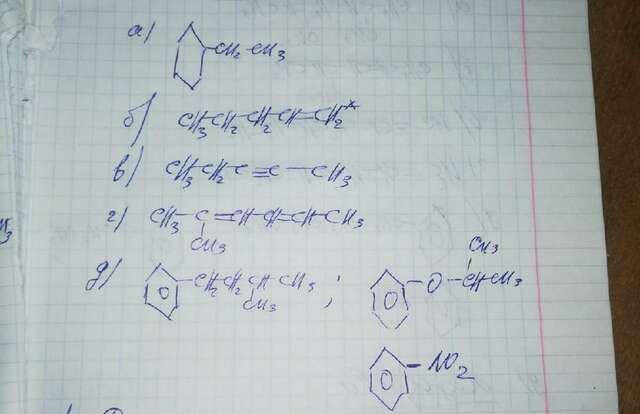 а) CH₂-CH₃
б) CH₃CH₂CH₂CH=CH₂
в) CH₃CH₂C≡C-CH₃
г) CH₃C=CH-CH=CH-CH₃
CH₃
д) CH₂CH₂CHCH₃ ; O-CHCH₃
CH₃ CH₃
NO₂